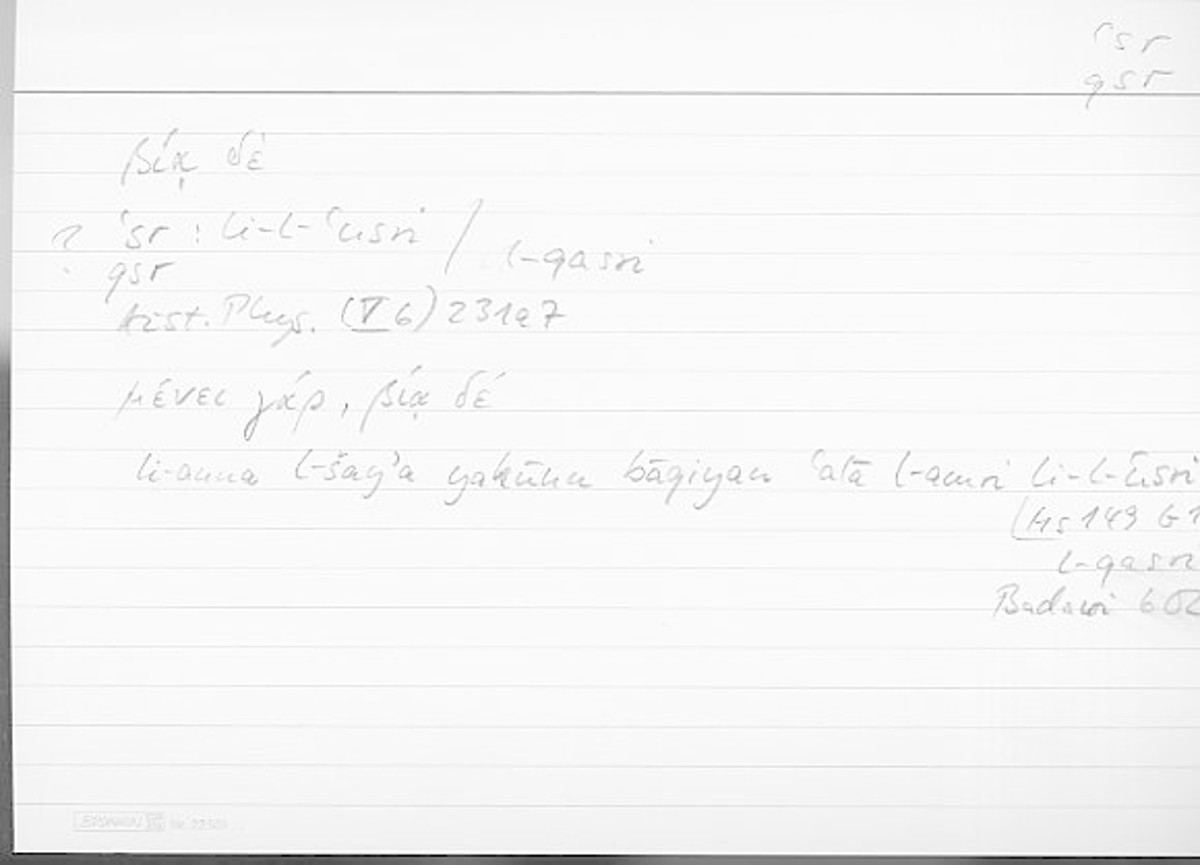 ʿsr
qsr
βίᾳ δέ
? ʿsr : li-l-ʿusri / l-qasri
qsr
Arist. Phys. (V 6) 231a7
μένει γάρ, βίᾳ δέ
li-anna l-šayʾa yakūnu bāqiyan ʿalā l-amri li-l-ʿusri
[Hs 149 b 1
l-qasri
Badawi 602